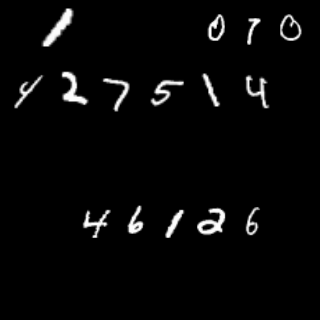 1 070
427514
46126